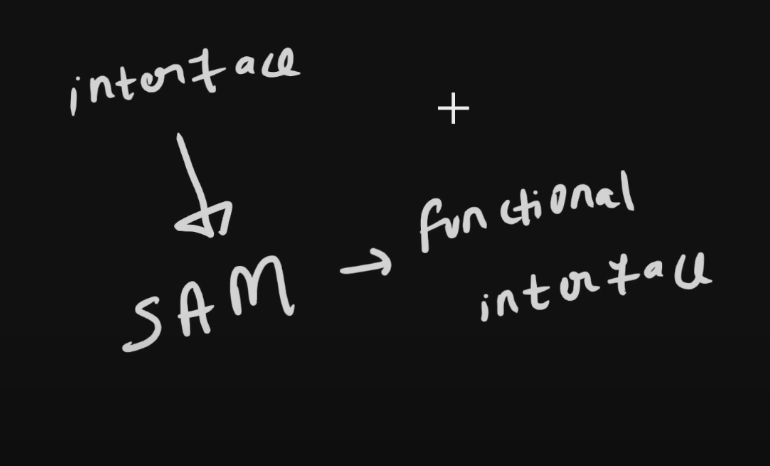 interface
SAM → functional
interface